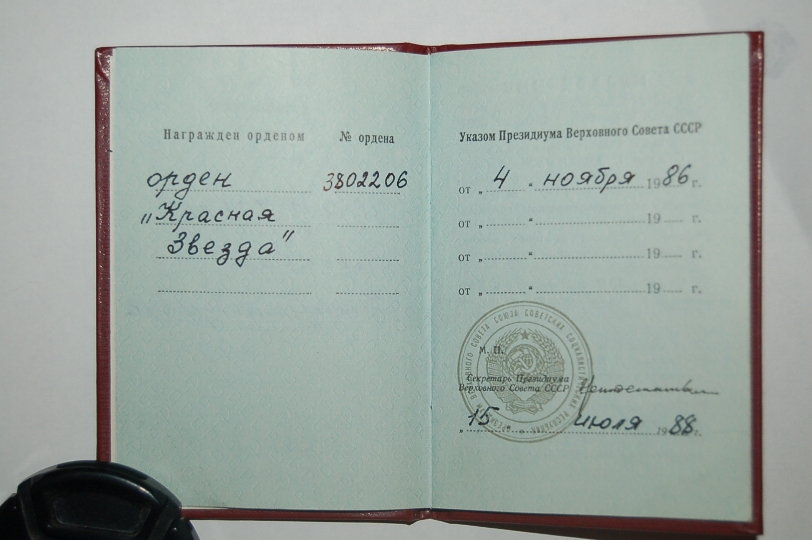 Награжден орденом № ордена
орден 3802206
„Красная
Звезда"
Указом Президиума Верховного Совета СССР
от „ 4 " ноября 1986 г.
от „ " 19 г.
от „ " 19 г.
от „ " 19 г.
М. П.
Секретарь Президиума
Верховного Совета СССР
„ 15 " июля 1988 г.
СОВЕТА СОЮЗА СОВЕТСКИХ